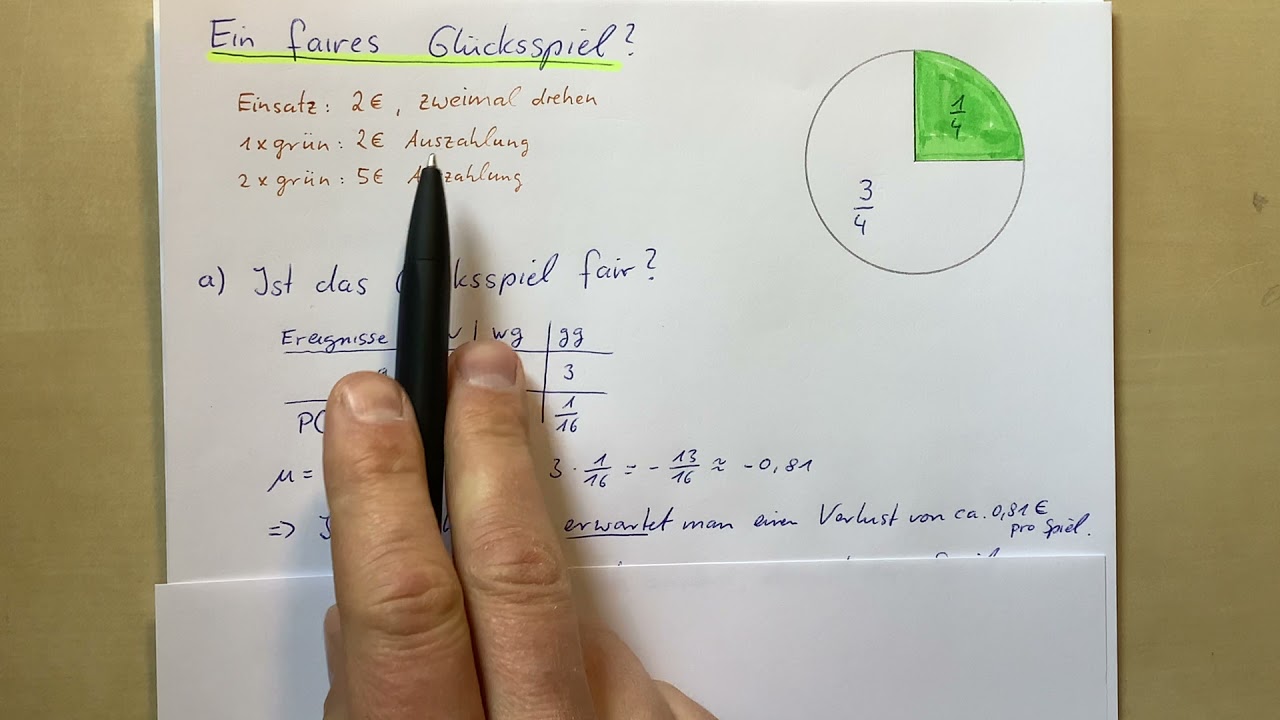 Ein faires Glücksspiel?
Einsatz: 2€, zweimal drehen
1x grün: 2€ Auszahlung
2x grün: 5€
1/4
3/4
a) Ist das fair?
Ereignisse | wg | gg
3
1/16
μ = 3 · 1/16 = - 13/16 ≈ -0,81
=> erwartet man einen Verlust von ca. 0,81€
pro Spiel.